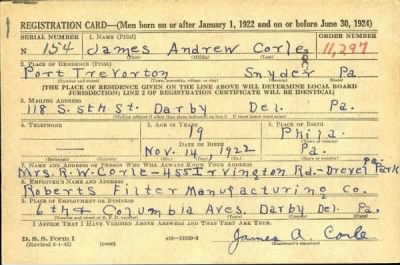 REGISTRATION CARD—(Men born on or after January 1, 1922 and on or before June 30, 1924)
SERIAL NUMBER 1. NAME (Print) ORDER NUMBER
N 154 James Andrew Corle 11,297
(First) (Middle) (Last)
2. PLACE OF RESIDENCE (Print)
Port Trevorton Snyder Pa
(Number and street) (Town, township, village, or city) (County) (State)
[THE PLACE OF RESIDENCE GIVEN ON THE LINE ABOVE WILL DETERMINE LOCAL BOARD
JURISDICTION; LINE 2 OF REGISTRATION CERTIFICATE WILL BE IDENTICAL]
3. MAILING ADDRESS
118 S. 5th St. Darby Del. Pa.
4. TELEPHONE 5. AGE IN YEARS 6. PLACE OF BIRTH
19 Phila.
DATE OF BIRTH
Nov. 14 1922 Pa
7. NAME AND ADDRESS OF PERSON WHO WILL ALWAYS KNOW YOUR ADDRESS
Mrs. R.W. Corle-455 Irvington Rd.-Drexel Park Pa
8. EMPLOYER'S NAME AND ADDRESS
Roberts Filter Manufacturing Co.
9. PLACE OF EMPLOYMENT OR BUSINESS
6th & Columbia Aves. Darby Del. Pa.
I AFFIRM THAT I HAVE VERIFIED ABOVE ANSWERS AND THAT THEY ARE TRUE.
D. S. S. Form 1
James A. Corle